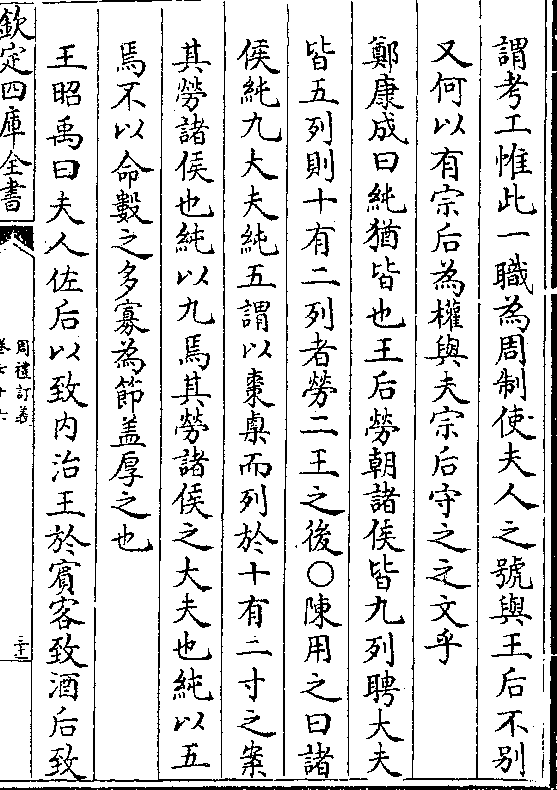 謂考工惟此一職為周制使夫人之號與王后不别
又何以有宗后為權與夫宗后守之之文乎
鄭康成曰純猶皆也王后勞朝諸侯皆九列聘大夫
皆五列則十有二列者勞二王之後〇陳用之曰諸
侯純九大夫純五謂以棗㮚而列於十有二寸之案
其勞諸侯也純以九焉其勞諸侯之大夫也純以五
焉不以命數之多寡為節盖厚之也
王昭禹曰夫人佐后以致内治王於賔客致酒后致
欽定四庫全書
周禮訂義
卷七十六